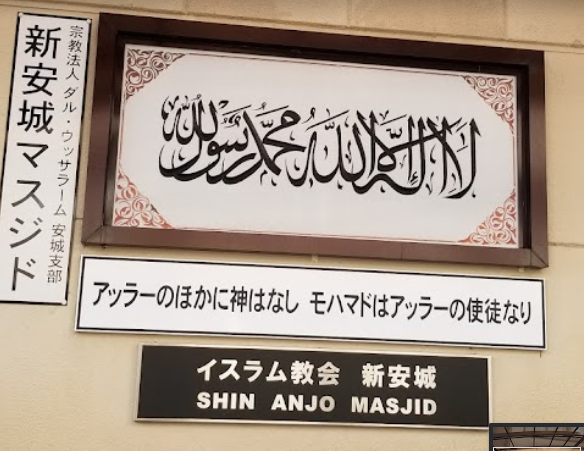 宗教法人 ダル・ウッサラーム 安城支部
新安城マスジド
لا إله إلا الله محمد رسول الله
アッラーのほかに神はなし モハマドはアッラーの使徒なり
イスラム教会 新安城
SHIN ANJO MASJID